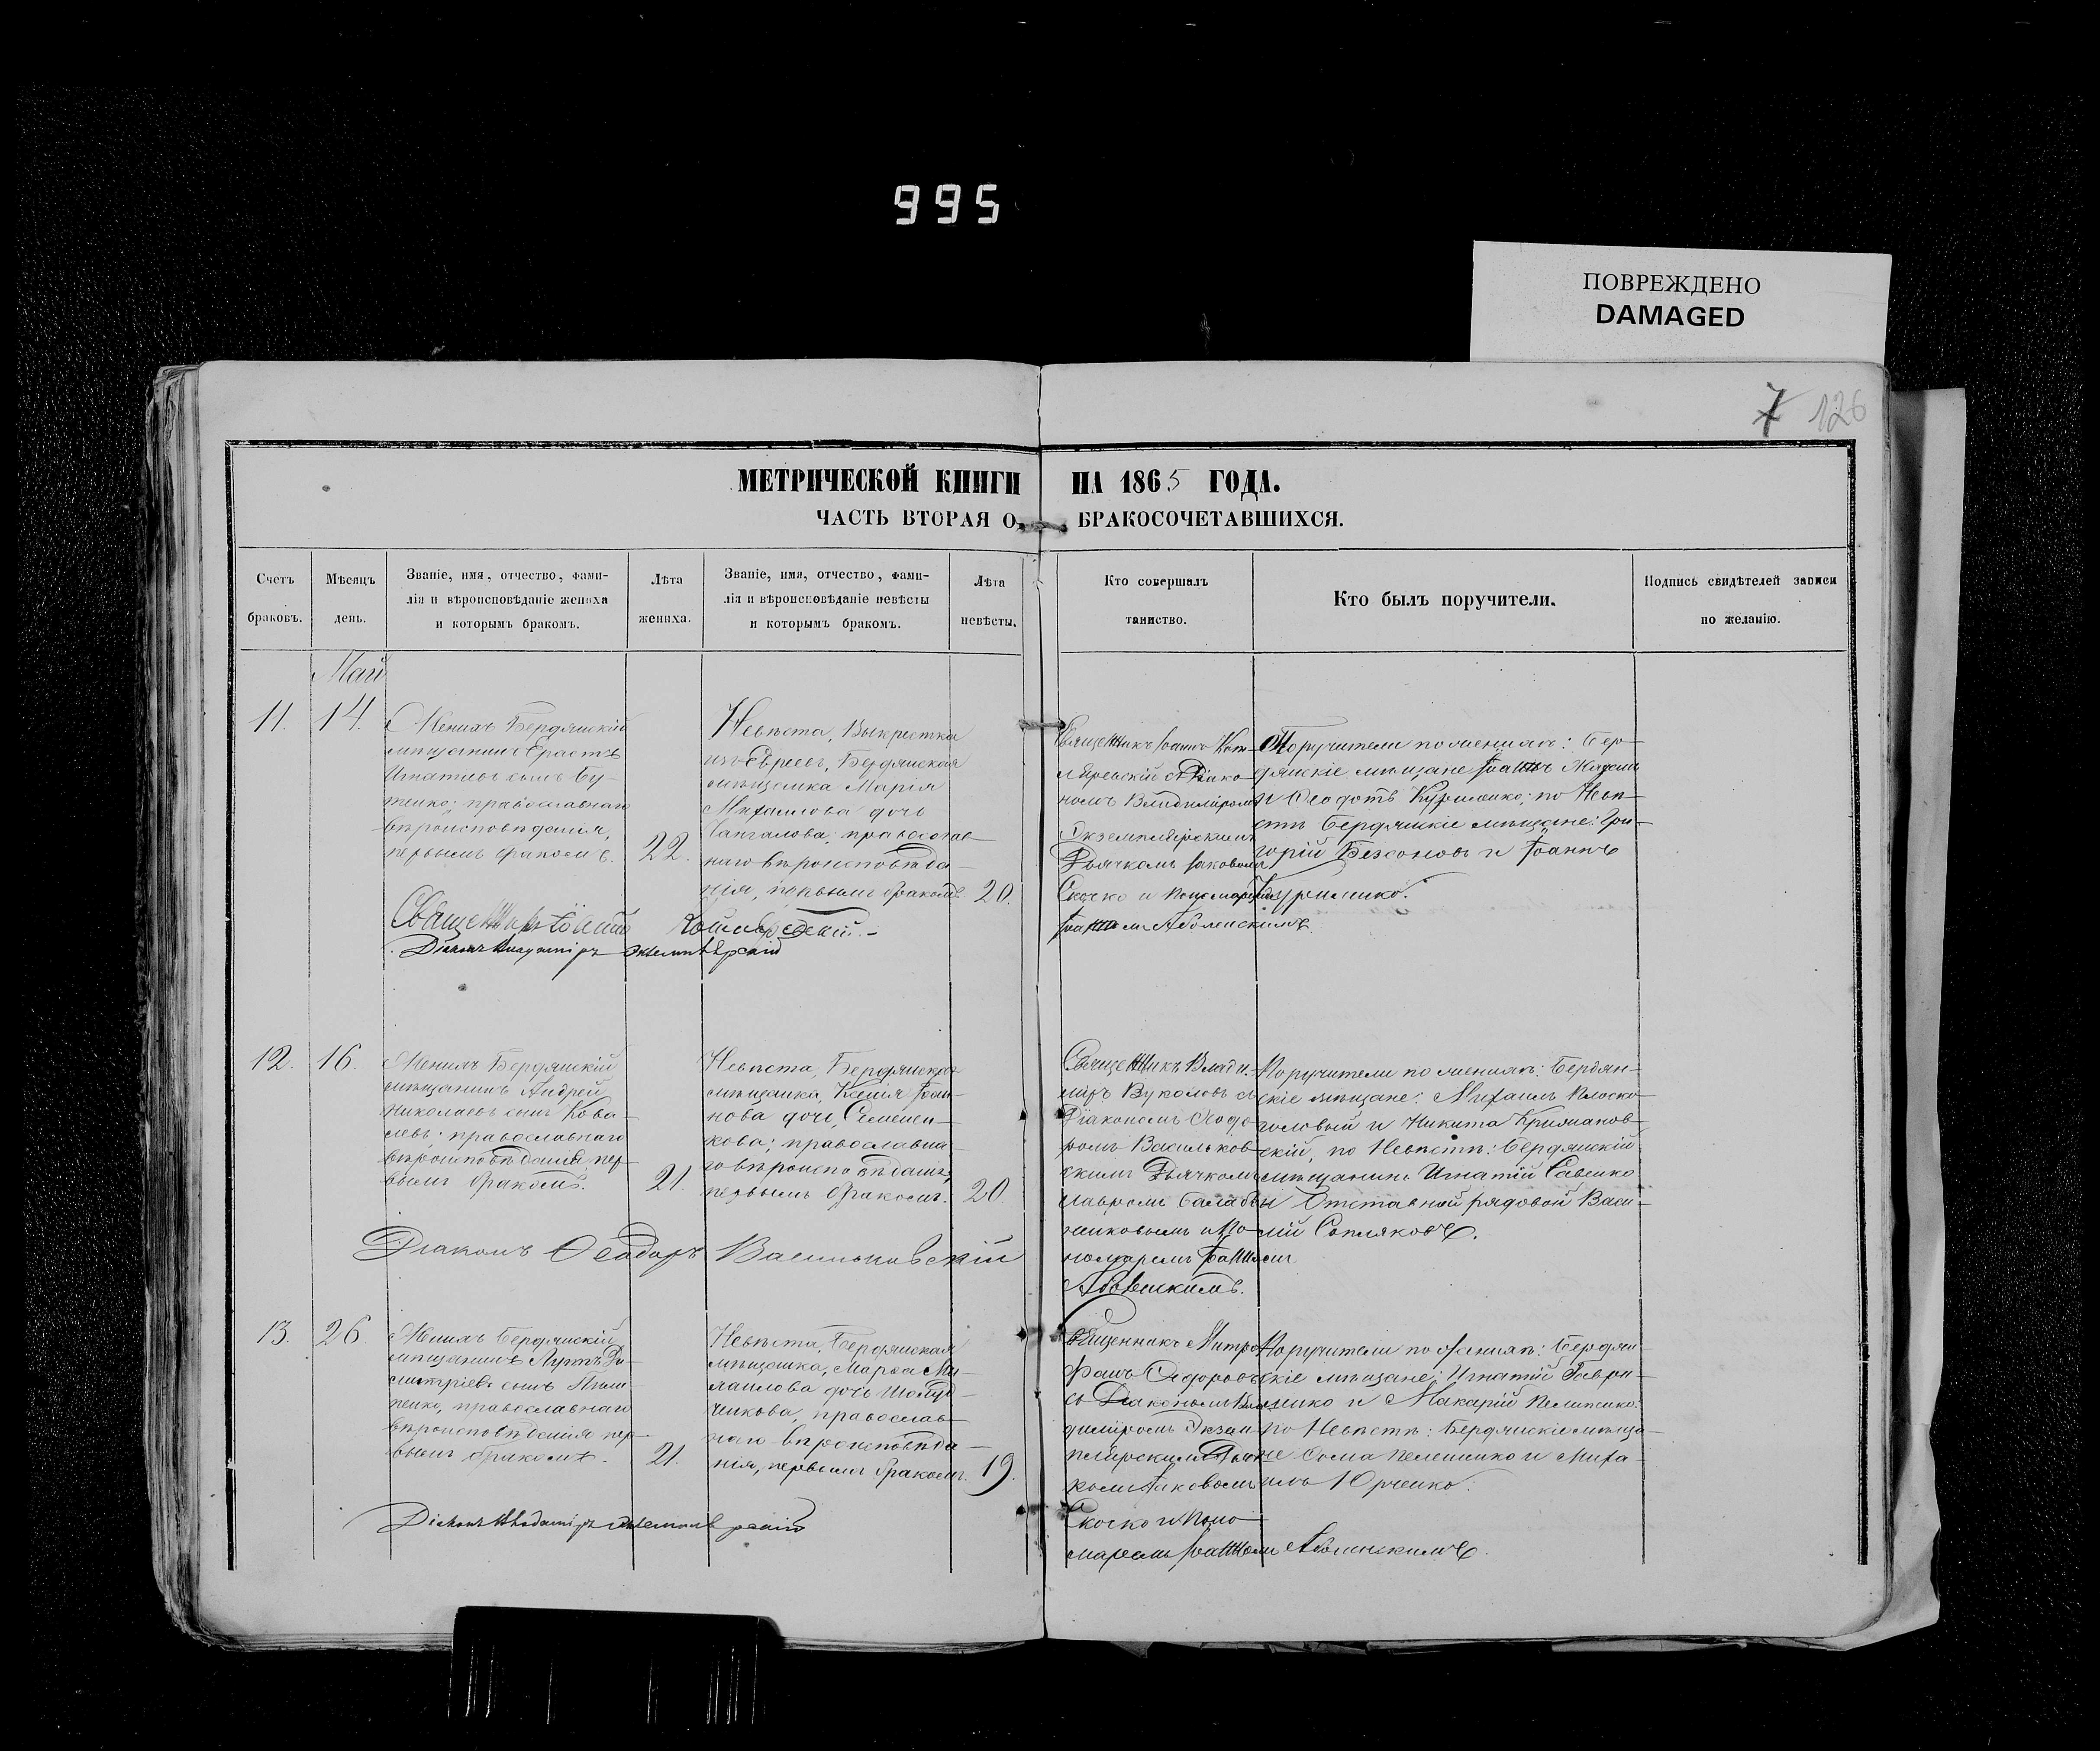 995
ПОВРЕЖДЕНО
DAMAGED
7 126
МЕТРИЧЕСКОЙ КНИГИ НА 1865 ГОДА.
ЧАСТЬ ВТОРАЯ О БРАКОСОЧЕТАВШИХСЯ.
Счетъ браковъ.
Мѣсяцъ день.
Званіе, имя, отчество, фами-
лія и вѣроисповѣданіе жениха
и которымъ бракомъ.
Лѣта жениха.
Званіе, имя, отчество, фами-
лія и вѣроисповѣданіе невѣсты
и которымъ бракомъ.
Лѣта невѣсты.
Кто совершалъ
таинство.
Кто былъ поручители.
Подпись свидѣтелей записи
по желанію.
Май
11. 14.
Женихъ Бердянскій
мѣщанинъ Ерастъ
Игнатіевъ сынъ Бу-
тенко; православнаго
вѣроисповѣданія,
первымъ бракомъ.
22.
Невѣста, Выкрестка
изъ Евреевъ, Бердянская
мѣщанка Марія
Михаилова дочь
православ-
наго вѣроисповѣда-
нія, первымъ бракомъ.
20.
Священникъ Іоаннъ Кот-
ляревскій съ Діако-
номъ Владиміромъ
Экземплярскимъ
Дьячкомъ Іаковомъ
Скочко и Пономаремъ
Іоанномъ
Поручители по женихѣ: Бер-
дянскіе мѣщане Іоаннъ
и Ѳеодотъ Куриленко; по Невѣ-
стѣ Бердянскіе мѣщане: Гри-
горій Безсоновъ и Іоаннъ
Куриленко.
Священникъ Іоаннъ Котляревскій.
Діаконъ Владиміръ Экземплярскій
12. 16.
Женихъ Бердянскій
мѣщанинъ Андрей
Николаевъ сынъ Кова-
левъ; православнаго
вѣроисповѣданія, пер-
вымъ бракомъ.
21.
Невѣста, Бердянская
мѣщанка, Ксенія Іоан-
нова дочь,
православна-
го вѣроисповѣданія,
первымъ бракомъ.
20.
Священникъ Влади-
міръ Вуколовъ съ
Діакономъ Ѳеодо-
ромъ Васильков-
скимъ Дьячкомъ
Лавромъ Балабу-
и По-
номаремъ Іоанномъ
Поручители по женихѣ: Бердян-
скіе мѣщане: Михаилъ Плоско-
головый и Никита
по Невѣстѣ: Бердянскій
мѣщанинъ Игнатій Савенко
и Отставной рядовой Васи-
лій Сопляковъ.
Діаконъ Ѳеодоръ Васильковскій
13. 26.
Женихъ Бердянскій
мѣщанинъ Ди-
митріевъ сынъ
православнаго
вѣроисповѣданія пер-
вымъ бракомъ.
21.
Невѣста, Бердянская
мѣщанка, Марѳа Ми-
хаилова дочь
православ-
наго вѣроисповѣда-
нія, первымъ бракомъ.
19.
Священникъ Митро-
фанъ Ѳедоровъ
съ Діакономъ Вла-
диміромъ Экзем-
плярскимъ Дьяч-
комъ Іаковомъ
Скочко и Поно-
маремъ Іоанномъ
Поручители по Женихѣ: Бердян-
скіе мѣщане: Игнатій Гаври-
ленко и Макарій Пелипенко.
по Невѣстѣ: Бердянскіе мѣща-
не Ѳома и Миха-
илъ Юрченко.
Діаконъ Владиміръ Экземплярскій